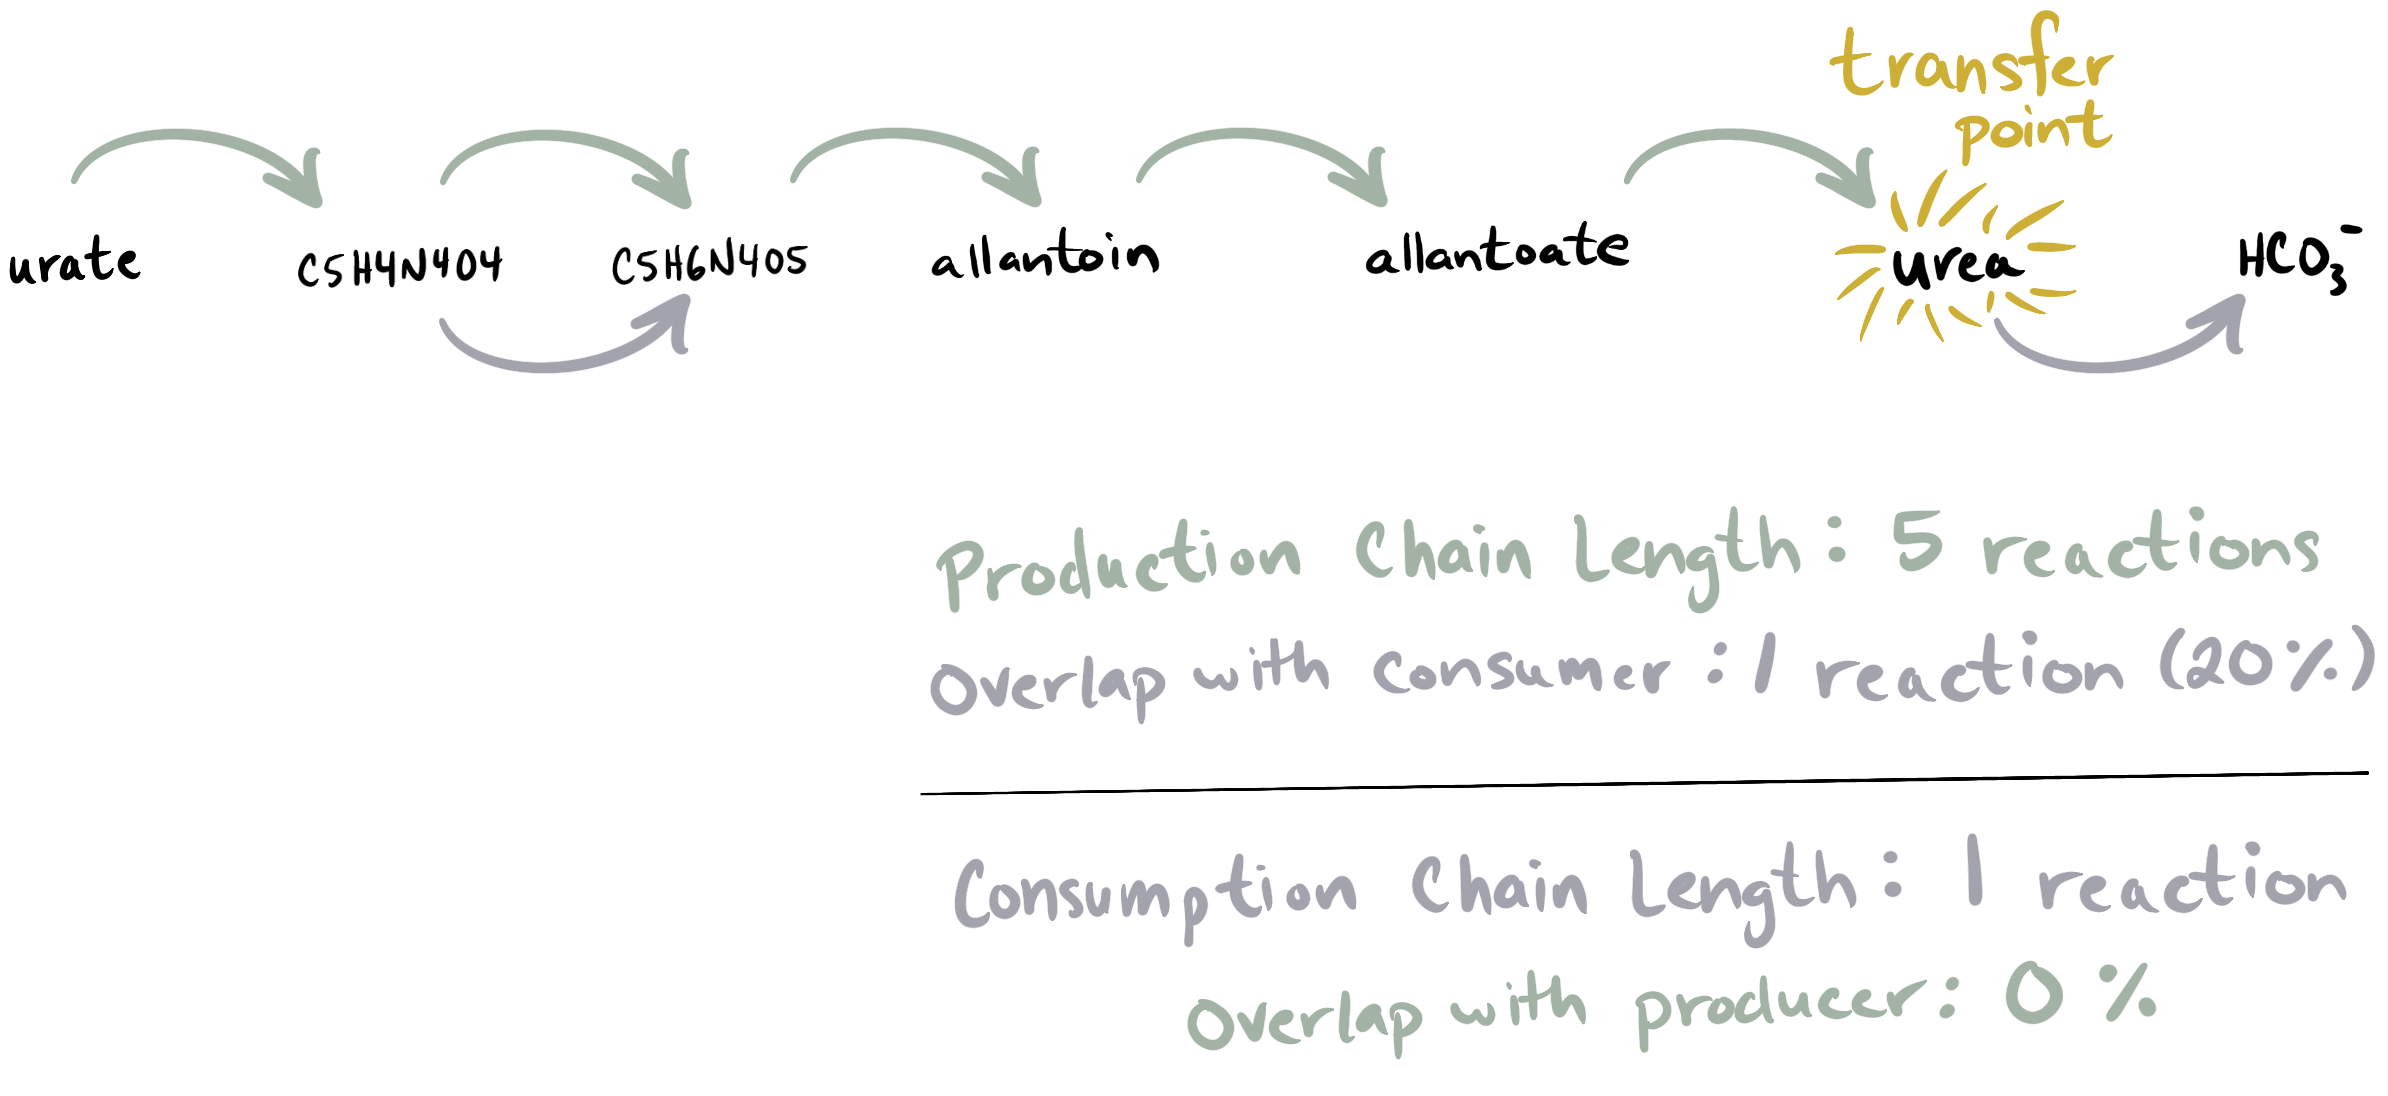 transfer
point
urate C5H4N4O4 C5H6N4O5 allantoin allantoate urea HCO₃⁻
Production Chain Length: 5 reactions
Overlap with consumer: 1 reaction (20%)
Consumption Chain Length: 1 reaction
Overlap with producer: 0%